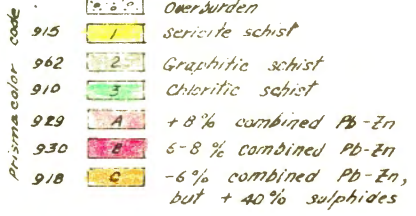 Prismacolor code
Overburden
915 1 sericite schist
962 2 Graphitic schist
910 3 Chloritic schist
929 A +8% combined Pb-Zn
930 B 6-8% combined Pb-Zn
918 C -6% combined Pb-Zn,
but +40% sulphides